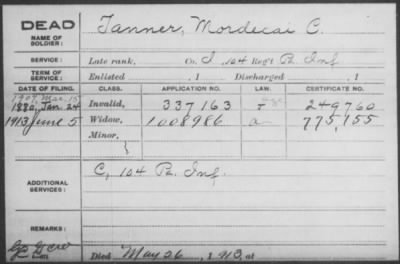 DEAD
NAME OF SOLDIER: Tanner, Mordecai C.
SERVICE: Late rank, Co. I, 104 Reg't Pa. Inf
TERM OF SERVICE: Enlisted , 1 Discharged , 1
DATE OF FILING. CLASS. APPLICATION NO. LAW. CERTIFICATE NO.
1907, Mar. 15
1880, Jan. 24 Invalid, 337163 249760
1913 June 5 Widow, 1008986 775,155
Minor,
ADDITIONAL SERVICES: C, 104 Pa. Inf.
REMARKS:
Died May 26, 1913, at